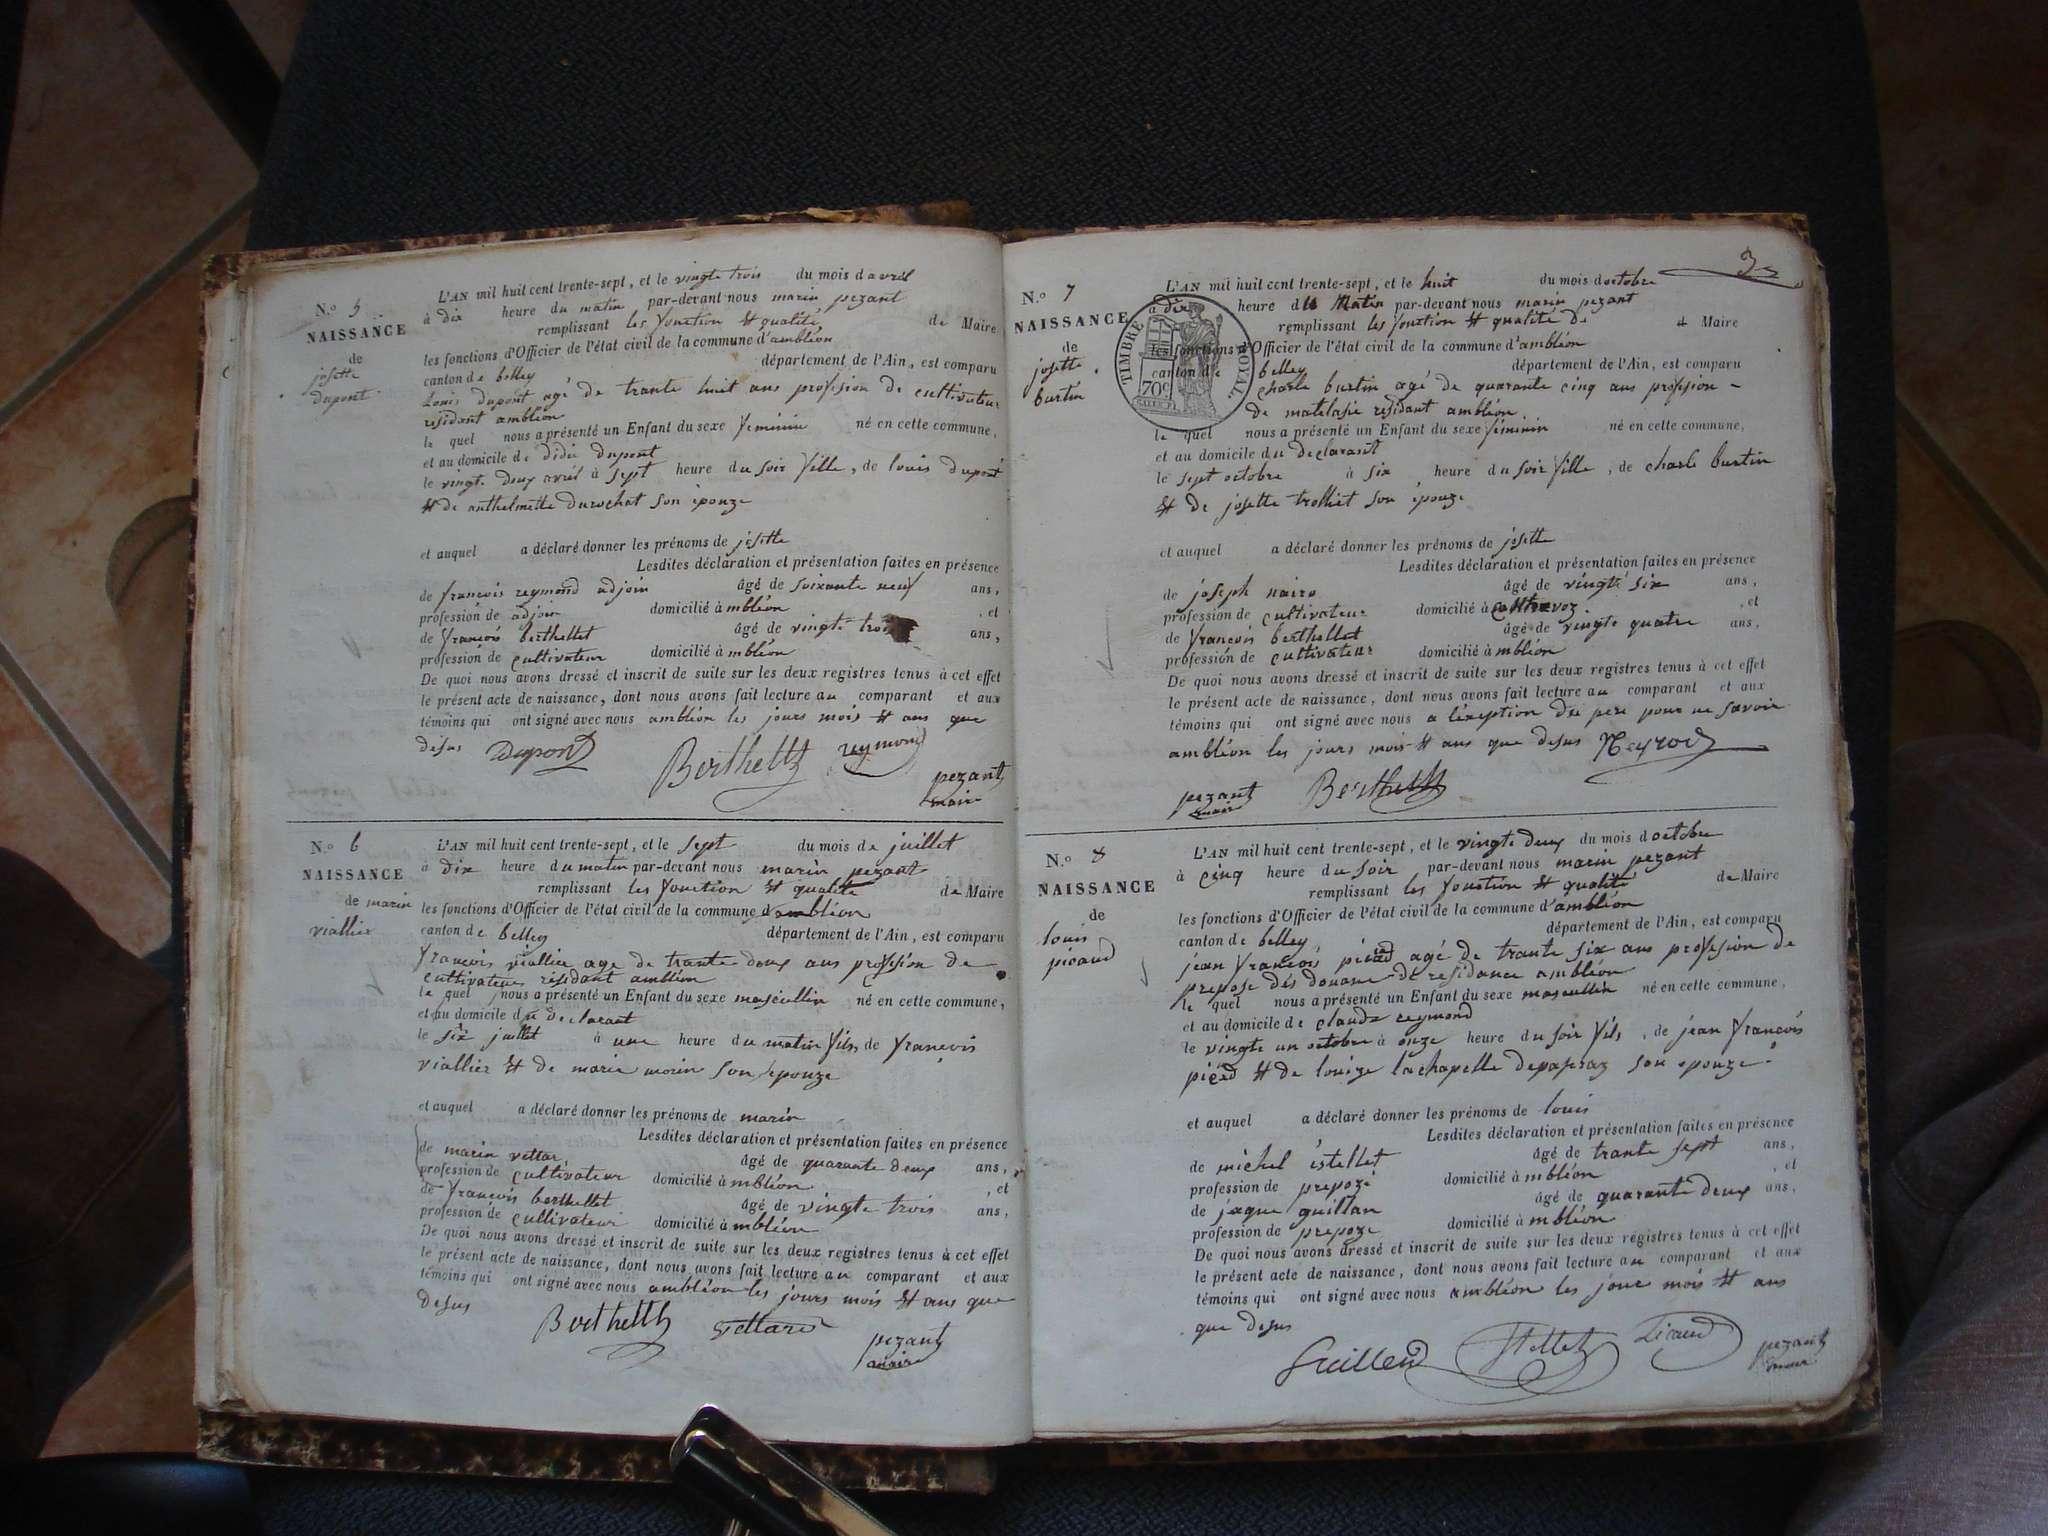 N.o 5
NAISSANCE
de
josette
dupont
L'AN mil huit cent trente-sept, et le vingte trois du mois d avril
à dix heure du matin par-devant nous marin pezant
remplissant les fonction et qualité de Maire
les fonctions d'Officier de l'état civil de la commune d'ambléon
canton de belley département de l'Ain, est comparu
Louis dupont agé de trante huit ans profesion de cultivateur
residant ambléon
le quel nous a présenté un Enfant du sexe feminin né en cette commune,
et au domicile de didié dupont
le vingte deux avril à sept heure du soir fille, de louis dupont
et de anthelmette durochat son épouze
et auquel a déclaré donner les prénoms de josette
Lesdites déclaration et présentation faites en présence
de francois reymond adjoin âgé de soixante neuf ans,
profession de adjoin domicilié à mbléon , et
de francois berthellet âgé de vingte trois ans,
profession de cultivateur domicilié à mbléon
De quoi nous avons dressé et inscrit de suite sur les deux registres tenus à cet effet
le présent acte de naissance, dont nous avons fait lecture au comparant et aux
témoins qui ont signé avec nous ambléon les jours mois et ans que
desus Dupont Berthellet reymond
pezant
maire
N.o 6
NAISSANCE
de marin
viallier
L'AN mil huit cent trente-sept, et le sept du mois de juillet
à dix heure du matin par-devant nous marin pezant
remplissant les fonction et qualité de Maire
les fonctions d'Officier de l'état civil de la commune d'ambléon
canton de belley département de l'Ain, est comparu
francois viallier age de trante deux ans profesion de
cultivateur résidant ambléon
le quel nous a présenté un Enfant du sexe mascullin né en cette commune,
et au domicile du declarant
le six juillet à une heure du matin fils, de francois
viallier et de marie morin son epouze
et auquel a déclaré donner les prénoms de marin
Lesdites déclaration et présentation faites en présence
de marin vettar âgé de quarante deux ans,
profession de cultivateur domicilié à mbléon , et
de francois berthellet âgé de vingte trois ans,
profession de cultivateur domicilié à mbléon
De quoi nous avons dressé et inscrit de suite sur les deux registres tenus à cet effet
le présent acte de naissance, dont nous avons fait lecture au comparant et aux
témoins qui ont signé avec nous ambléon les jours mois et ans que
desus Berthellet vettard
pezant
maire
3
N.o 7
NAISSANCE
de
josette
burtin
TIMBRE ROYAL.
70c
L'AN mil huit cent trente-sept, et le huit du mois d octobre
à dix heure du Matin par-devant nous marin pezant
remplissant les fonction et qualité de d Maire
les fonctions d'Officier de l'état civil de la commune d'ambléon
canton de belley département de l'Ain, est comparu
charle burtin agé de quarante cinq ans profesion
de matelasie residant ambléon
le quel nous a présenté un Enfant du sexe féminin né en cette commune,
et au domicile du declarant
le sept octobre à six heure du soir fille, de charle burtin
et de josette trolliet son épouze
et auquel a déclaré donner les prénoms de josette
Lesdites déclaration et présentation faites en présence
de joseph âgé de vingte six ans,
profession de cultivateur domicilié à , et
de francois berthellet âgé de vingte quatre ans,
profession de cultivateur domicilié à mbléon
De quoi nous avons dressé et inscrit de suite sur les deux registres tenus à cet effet
le présent acte de naissance, dont nous avons fait lecture au comparant et aux
témoins qui ont signé avec nous a léxeption du pere pour ne savoir
ambléon les jours mois et ans que desus Neyrod
pezant Berthellet
maire
N.o 8
NAISSANCE
de
louis
picaud
L'AN mil huit cent trente-sept, et le vingte deux du mois d octobre
à cinq heure du soir par-devant nous marin pezant
remplissant les fonction et qualité de Maire
les fonctions d'Officier de l'état civil de la commune d'ambléon
canton de belley, département de l'Ain, est comparu
jean francois agé de trante six ans profesion de
prepose dés douane de residance ambléon
le quel nous a présenté un Enfant du sexe mascullin né en cette commune,
et au domicile de claude reymond
le vingte un octobre à onze heure du soir fils, de jean francois
et de louize lachapelle son epouze
et auquel a déclaré donner les prénoms de louis
Lesdites déclaration et présentation faites en présence
de michel istellet âgé de trante sept ans,
profession de prepozé domicilié à mbléon , et
de jaque guillan âgé de quarante deux ans,
profession de prepoze domicilié à mbléon
De quoi nous avons dressé et inscrit de suite sur les deux registres tenus à cet effet
le présent acte de naissance, dont nous avons fait lecture au comparant et aux
témoins qui ont signé avec nous ambléon les jour mois et ans
que desus
Picaud pezant
maire